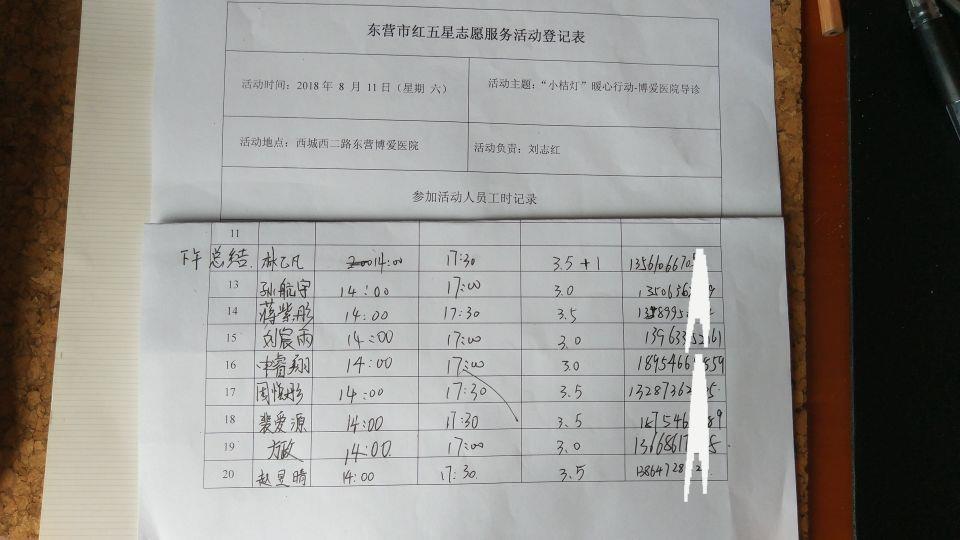 东营市红五星志愿服务活动登记表
活动时间：2018年 8 月 11日（星期 六） 活动主题：“小桔灯”暖心行动-博爱医院导诊
活动地点：西城西二路东营博爱医院 活动负责：刘志红
参加活动人员工时记录
11
下午 总结 林乙凡 14:00 17:30 3.5+1
13 孙航宇 14:00 17:00 3.0
14 蒋紫彤 14:00 17:30 3.5
15 刘宸雨 14:00 17:00 3.0
16 睿翔 14:00 17:00 3.0
17 周悦彤 14:00 17:30 3.5
18 裴爱源 14:00 17:30 3.5
19 方政 14:00 17:00 3.0
20 赵昱晴 14:00 17:30 3.5